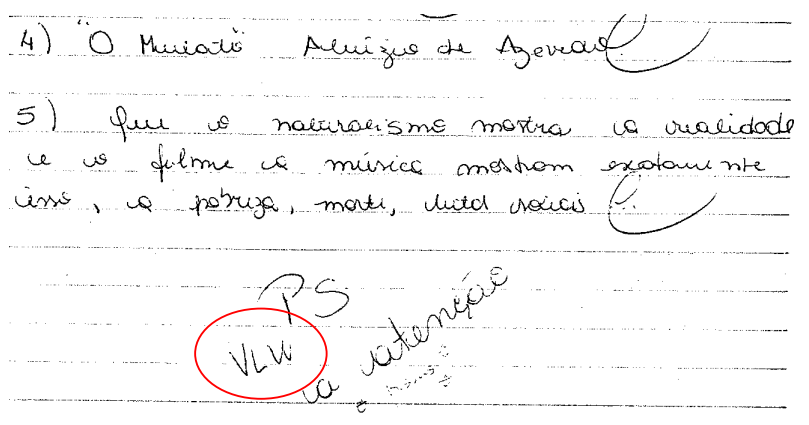 4) "O Mulato" Aluízio de Azevedo.
5) Que o naturalismo mostra a realidade
e o filme e a música mostram exatamente
isso, a pobreza, morte, lutas sociais.
PS
VLW
a atenção